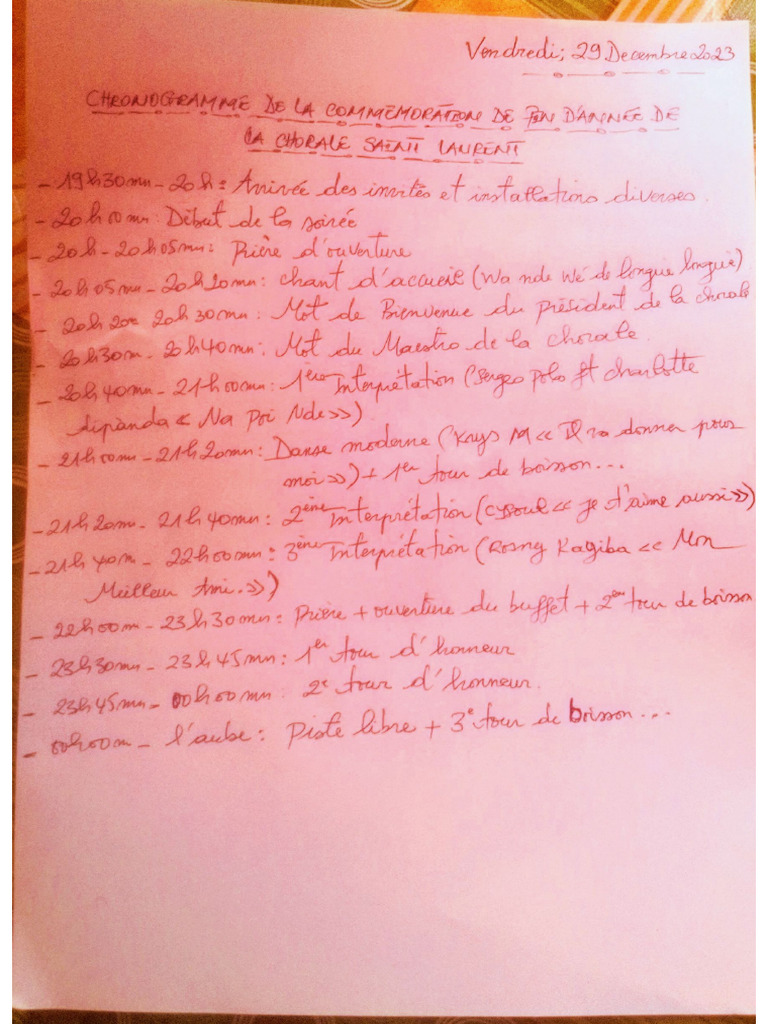 Vendredi; 29 Decembre 2023
CHRONOGRAMME DE LA COMMEMORATION DE FIN D'ANNEE DE
LA CHORALE SAINT LAURENT
- 19h30mn - 20h: Arrivée des invités et installations diverses.
- 20h00mn: Début de la soirée
- 20h - 20h05mn: Prière d'ouverture
- 20h05mn - 20h20mn: chant d'accueil (Wa nde Wé de longue longue)
- 20h20 - 20h30mn: Mot de Bienvenue du président de la chorale
- 20h30m - 20h40mn: Mot du Maestro de la chorale.
- 20h40mn - 21h00mn: 1ère Interprétation (Serges Polo ft charlotte
dipanda « Na Poi Nde»)
- 21h00mn - 21h20mn: Danse moderne (Krys M « Il va donner pour
moi») + 1er tour de boisson...
- 21h20m - 21h40mn: 2ème Interprétation (« je t'aime aussi»)
- 21h40m - 22h00mn: 3ème Interprétation (Rosny Kayiba « Mon
Meilleur Ami.»)
- 22h00m - 23h30mn: Prière + ouverture du buffet + 2ème tour de boisson
- 23h30mn - 23h45mn: 1er tour d'honneur
- 23h45mn - 00h00mn: 2e tour d'honneur.
- 00h00m - l'aube: Piste libre + 3e tour de boisson...